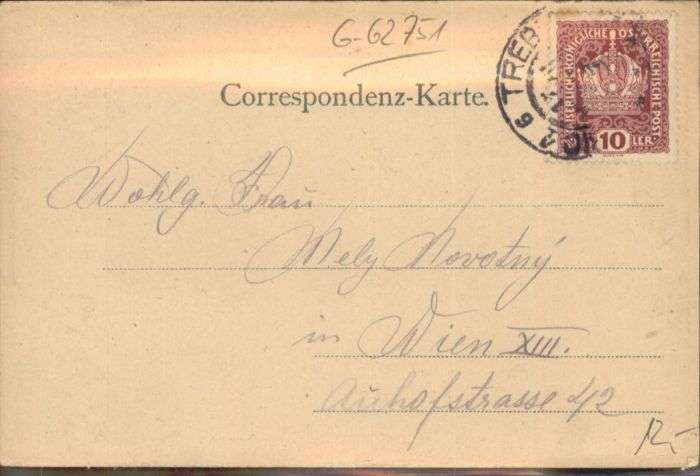 G-62751
Correspondenz-Karte.
TREB
KAISERLICH-KÖNIGLICHE ÖSTERREICHISCHE POST
10
Wohlg. Frau
Mely Novotný
in Wien XIII.
Auhofstrasse 42